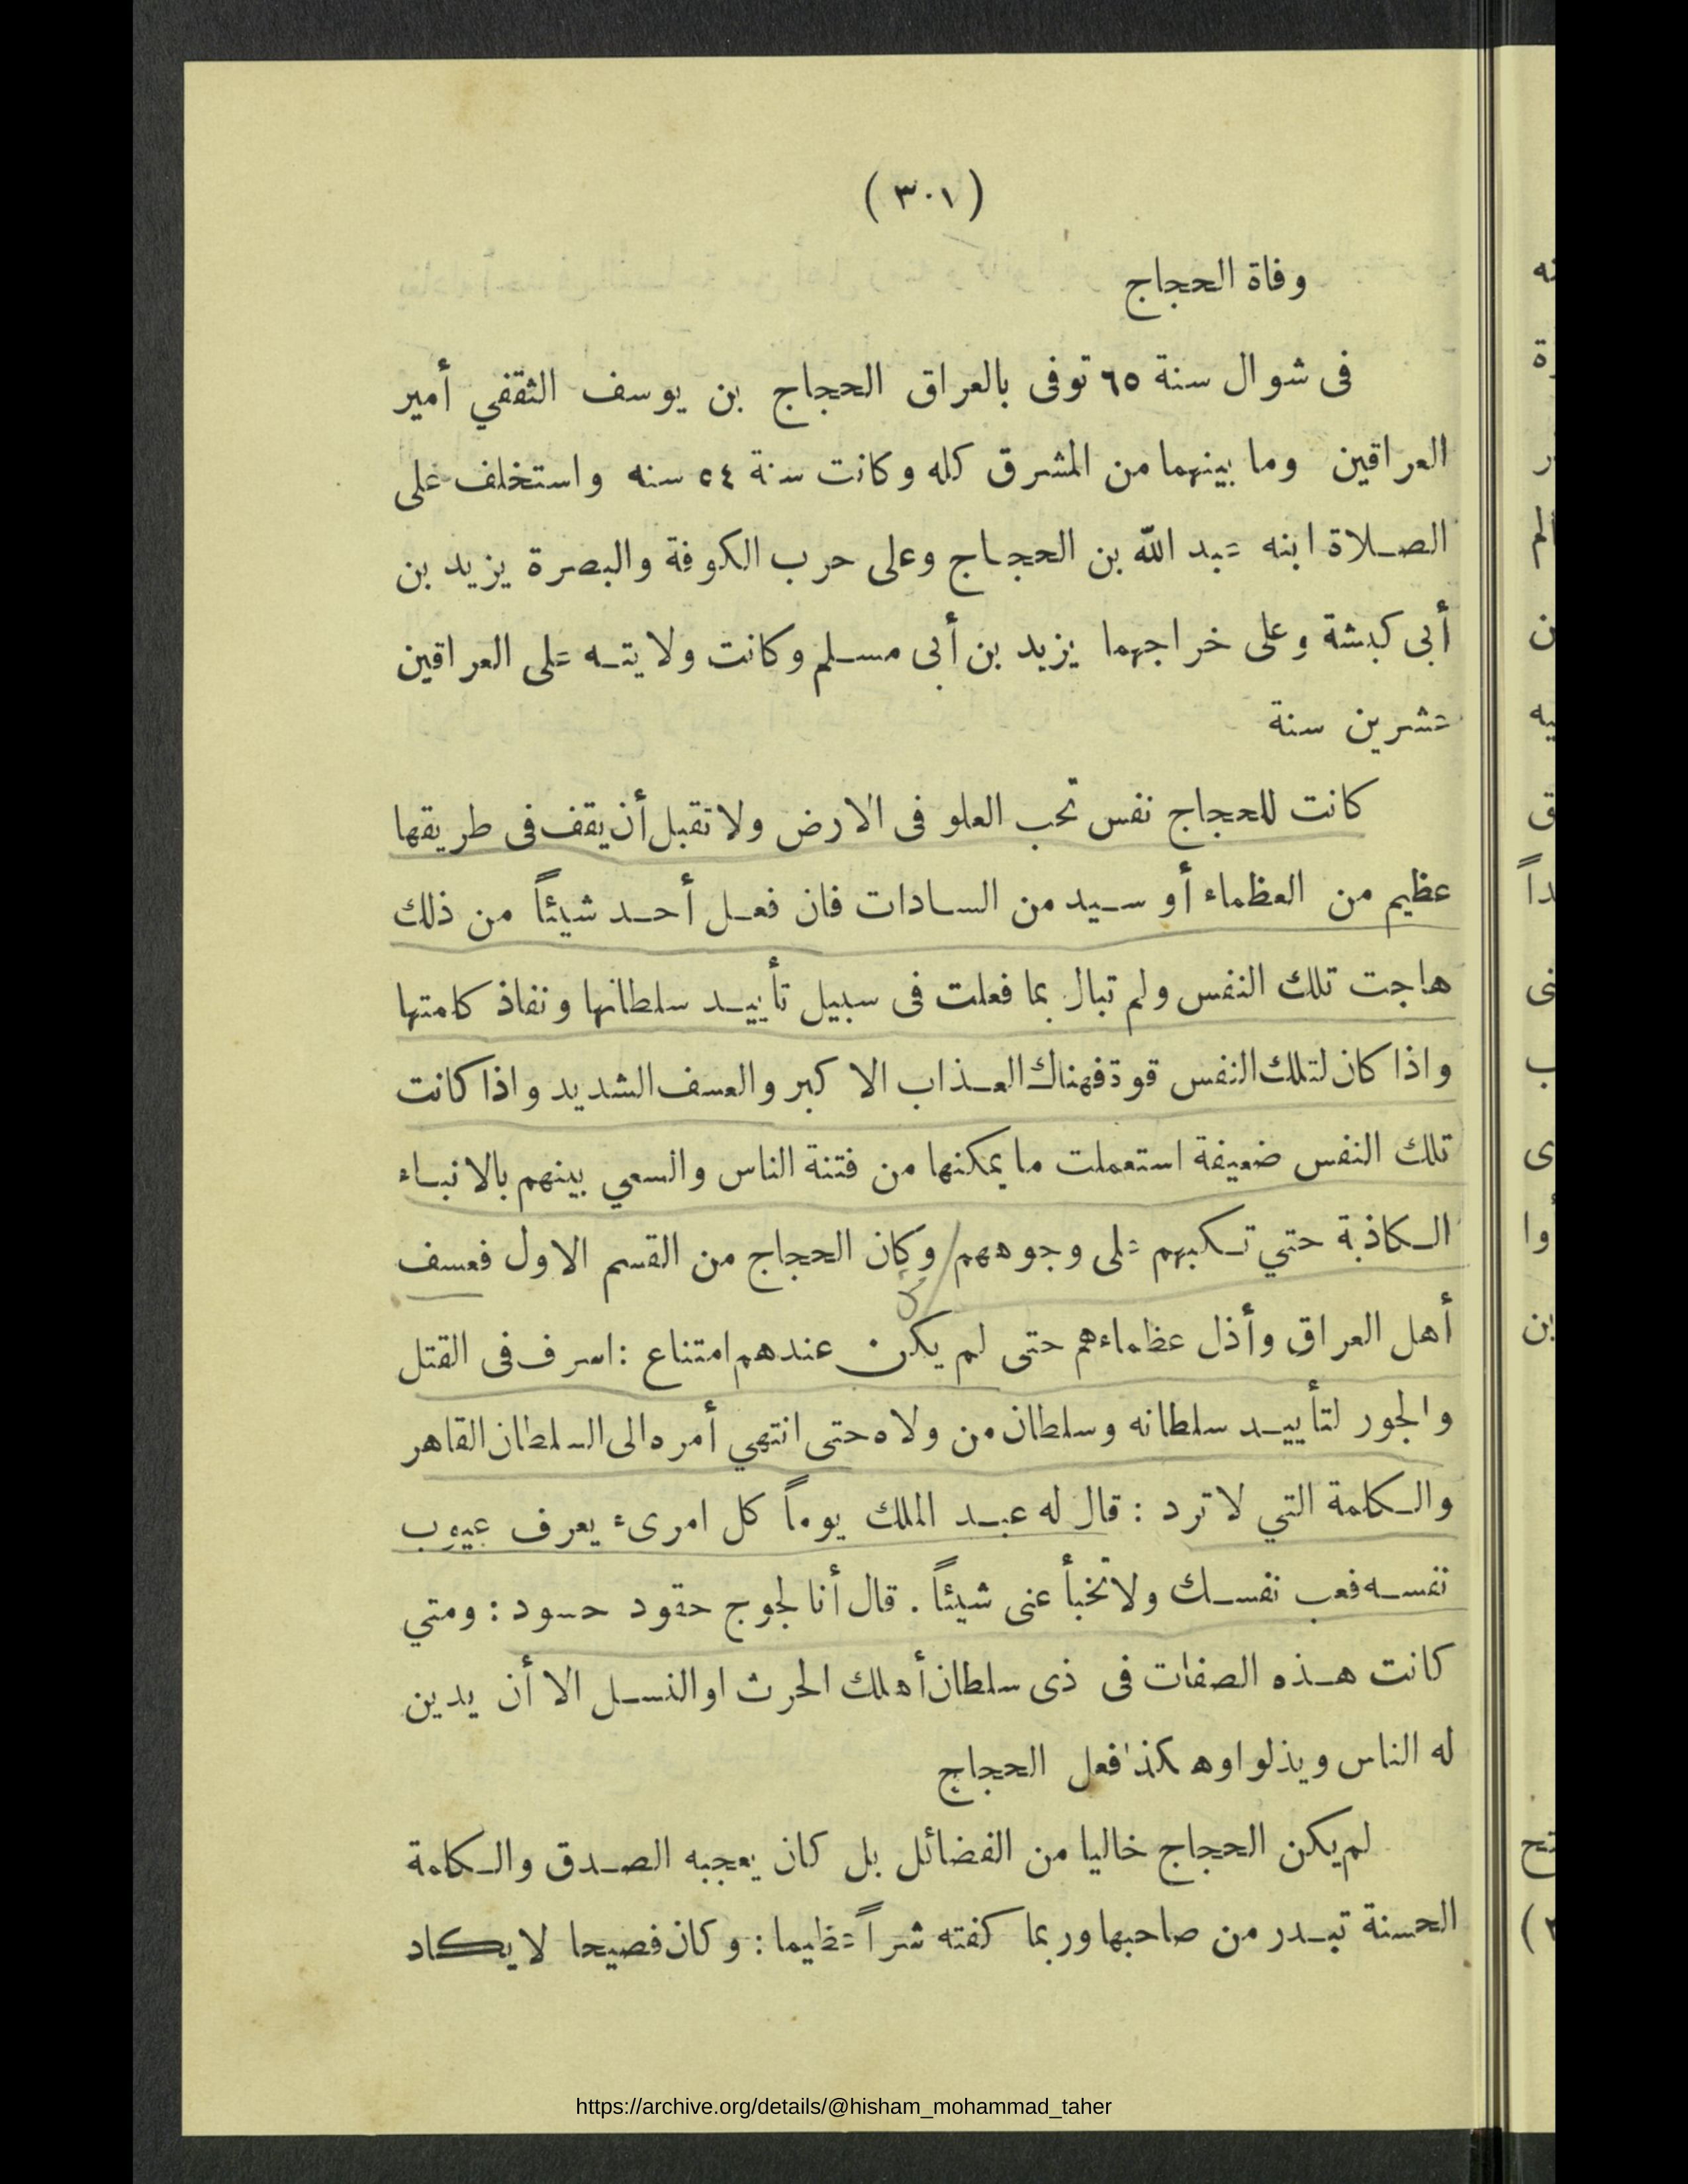 (٣٠١)
وفاة الحجاج
فى شوال سنة ٦٥ توفى بالعراق الحجاج بن يوسف الثقفي أمير
العراقين وما بينهما من المشرق كله وكانت سنة ٥٤ سنه واستخلف على
الصلاة ابنه عبد الله بن الحجاج وعلى حرب الكوفة والبصرة يزيد بن
أبى كبشة وعلى خراجهما يزيد بن أبى مسلم وكانت ولايته على العراقين
عشرين سنة
كانت للحجاج نفس تحب العلو فى الارض ولا تقبل أن يقف فى طريقها
عظيم من العظماء أو سيد من السادات فان فعل أحد شيئاً من ذلك
هاجت تلك النفس ولم تبال بما فعلت فى سبيل تأييد سلطانها ونفاذ كلمتها
واذا كان لتلك النفس قوة فهناك العذاب الاكبر والعسف الشديد واذا كانت
تلك النفس ضعيفة استعملت ما يمكنها من فتنة الناس والسعي بينهم بالانباء
الكاذبة حتي تكبهم على وجوههم وكان الحجاج من القسم الاول فعسف
أهل العراق وأذل عظماءهم حتى لم يكن عندهم امتناع : اسرف فى القتل
والجور لتأييد سلطانه وسلطان من ولاه حتى انتهي أمره الى السلطان القاهر
والكلمة التي لا ترد : قال له عبد الملك يوماً كل امرىء يعرف عيوب
نفسه فعب نفسك ولا تخبأ عنى شيئاً . قال أنا لجوج حقود حسود : ومتي
كانت هذه الصفات فى ذى سلطان أهلك الحرث او النسل الا أن يدين
له الناس ويذلوا وهكذا فعل الحجاج
لم يكن الحجاج خاليا من الفضائل بل كان يعجبه الصدق والكلمة
الحسنة تبدر من صاحبها وربما كفته شراً عظيما : وكان فصيحا لا يكاد
https://archive.org/details/@hisham_mohammad_taher